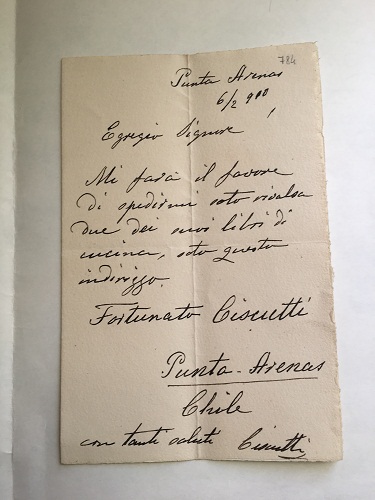 784
Punta Arenas
6/2 900
Egregio Signore,
Mi farà il favore
di spedirmi soto rivalsa
due dei suoi libri di
cucina, soto questo
indirizzo.
Fortunato Ciscutti
Punta-Arenas
Chile
con tanti saluti Ciscutti